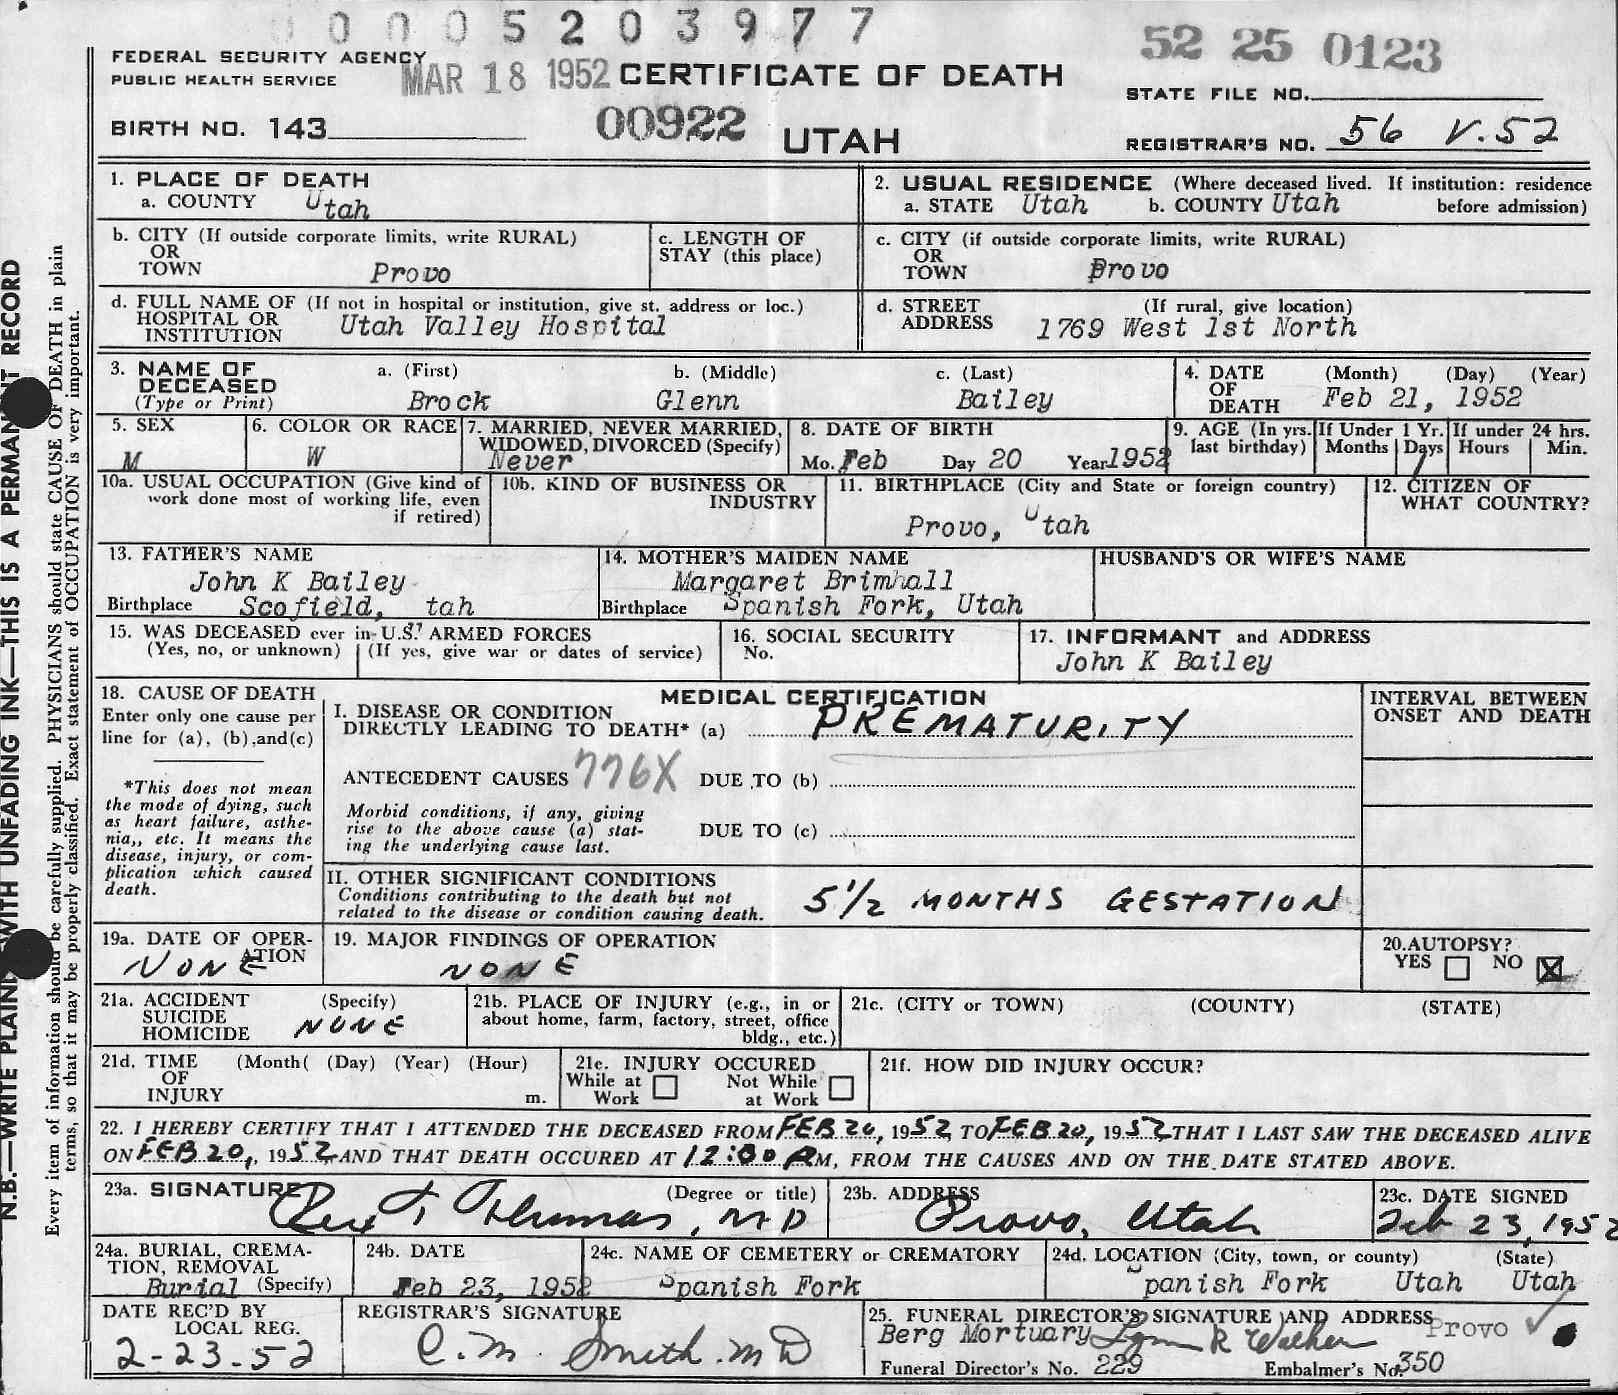 0 0 0 5 2 0 3 9 7 7
FEDERAL SECURITY AGENCY
PUBLIC HEALTH SERVICE
MAR 18 1952
CERTIFICATE OF DEATH
52 25 0123
STATE FILE NO.
BIRTH NO. 143
00922
UTAH
REGISTRAR'S NO. 56 V.52
1. PLACE OF DEATH
a. COUNTY Utah
2. USUAL RESIDENCE (Where deceased lived. If institution: residence
a. STATE Utah b. COUNTY Utah before admission)
b. CITY (If outside corporate limits, write RURAL)
OR
TOWN Provo
c. LENGTH OF
STAY (this place)
c. CITY (if outside corporate limits, write RURAL)
OR
TOWN Provo
d. FULL NAME OF (If not in hospital or institution, give st. address or loc.)
HOSPITAL OR
INSTITUTION Utah Valley Hospital
d. STREET (If rural, give location)
ADDRESS 1769 West 1st North
3. NAME OF a. (First) b. (Middle) c. (Last)
DECEASED
(Type or Print) Brock Glenn Bailey
4. DATE (Month) (Day) (Year)
OF
DEATH Feb 21, 1952
5. SEX
M
6. COLOR OR RACE
W
7. MARRIED, NEVER MARRIED,
WIDOWED, DIVORCED (Specify)
Never
8. DATE OF BIRTH
Mo. Feb Day 20 Year 1952
9. AGE (In yrs.
last birthday)
If Under 1 Yr.
Months Days
1
If under 24 hrs.
Hours Min.
10a. USUAL OCCUPATION (Give kind of
work done most of working life, even
if retired)
10b. KIND OF BUSINESS OR
INDUSTRY
11. BIRTHPLACE (City and State or foreign country)
Provo, Utah
12. CITIZEN OF
WHAT COUNTRY?
13. FATHER'S NAME
John K Bailey
Birthplace Scofield, tah
14. MOTHER'S MAIDEN NAME
Margaret Brimhall
Birthplace Spanish Fork, Utah
HUSBAND'S OR WIFE'S NAME
15. WAS DECEASED ever in U.S. ARMED FORCES
(Yes, no, or unknown) (If yes, give war or dates of service)
16. SOCIAL SECURITY
No.
17. INFORMANT and ADDRESS
John K Bailey
18. CAUSE OF DEATH
Enter only one cause per
line for (a), (b),and(c)
*This does not mean
the mode of dying, such
as heart failure, asthe-
nia,, etc. It means the
disease, injury, or com-
plication which caused
death.
MEDICAL CERTIFICATION
I. DISEASE OR CONDITION
DIRECTLY LEADING TO DEATH* (a) PREMATURITY
ANTECEDENT CAUSES 776X DUE TO (b)
Morbid conditions, if any, giving
rise to the above cause (a) stat-
ing the underlying cause last.
DUE TO (c)
INTERVAL BETWEEN
ONSET AND DEATH
II. OTHER SIGNIFICANT CONDITIONS
Conditions contributing to the death but not
related to the disease or condition causing death.
5 1/2 MONTHS GESTATION
19a. DATE OF OPER-
ATION
NONE
19. MAJOR FINDINGS OF OPERATION
NONE
20.AUTOPSY?
YES NO X
21a. ACCIDENT (Specify)
SUICIDE
HOMICIDE NONE
21b. PLACE OF INJURY (e.g., in or
about home, farm, factory, street, office
bldg., etc.)
21c. (CITY or TOWN) (COUNTY) (STATE)
21d. TIME (Month( (Day) (Year) (Hour)
OF
INJURY m.
21e. INJURY OCCURED
While at Not While
Work at Work
21f. HOW DID INJURY OCCUR?
22. I HEREBY CERTIFY THAT I ATTENDED THE DECEASED FROM FEB 20, 1952 TO FEB 20, 1952 THAT I LAST SAW THE DECEASED ALIVE
ON FEB 20, 1952 AND THAT DEATH OCCURED AT 12:00 AM, FROM THE CAUSES AND ON THE DATE STATED ABOVE.
23a. SIGNATURE (Degree or title)
Rex T Thomas, MD
23b. ADDRESS
Provo, Utah
23c. DATE SIGNED
Feb 23, 1952
24a. BURIAL, CREMA-
TION, REMOVAL
Burial (Specify)
24b. DATE
Feb 23, 1952
24c. NAME OF CEMETERY or CREMATORY
Spanish Fork
24d. LOCATION (City, town, or county) (State)
Spanish Fork Utah Utah
DATE REC'D BY
LOCAL REG.
2-23-52
REGISTRAR'S SIGNATURE
C. M. Smith. MD
25. FUNERAL DIRECTOR'S SIGNATURE AND ADDRESS
Berg Mortuary Lynn R Walker Provo
Funeral Director's No. 229 Embalmer's No. 350
N.B.—WRITE PLAINLY WITH UNFADING INK—THIS IS A PERMANENT RECORD
Every item of information should be carefully supplied. PHYSICIANS should state CAUSE OF DEATH in plain
terms, so that it may be properly classified. Exact statement of OCCUPATION is very important.